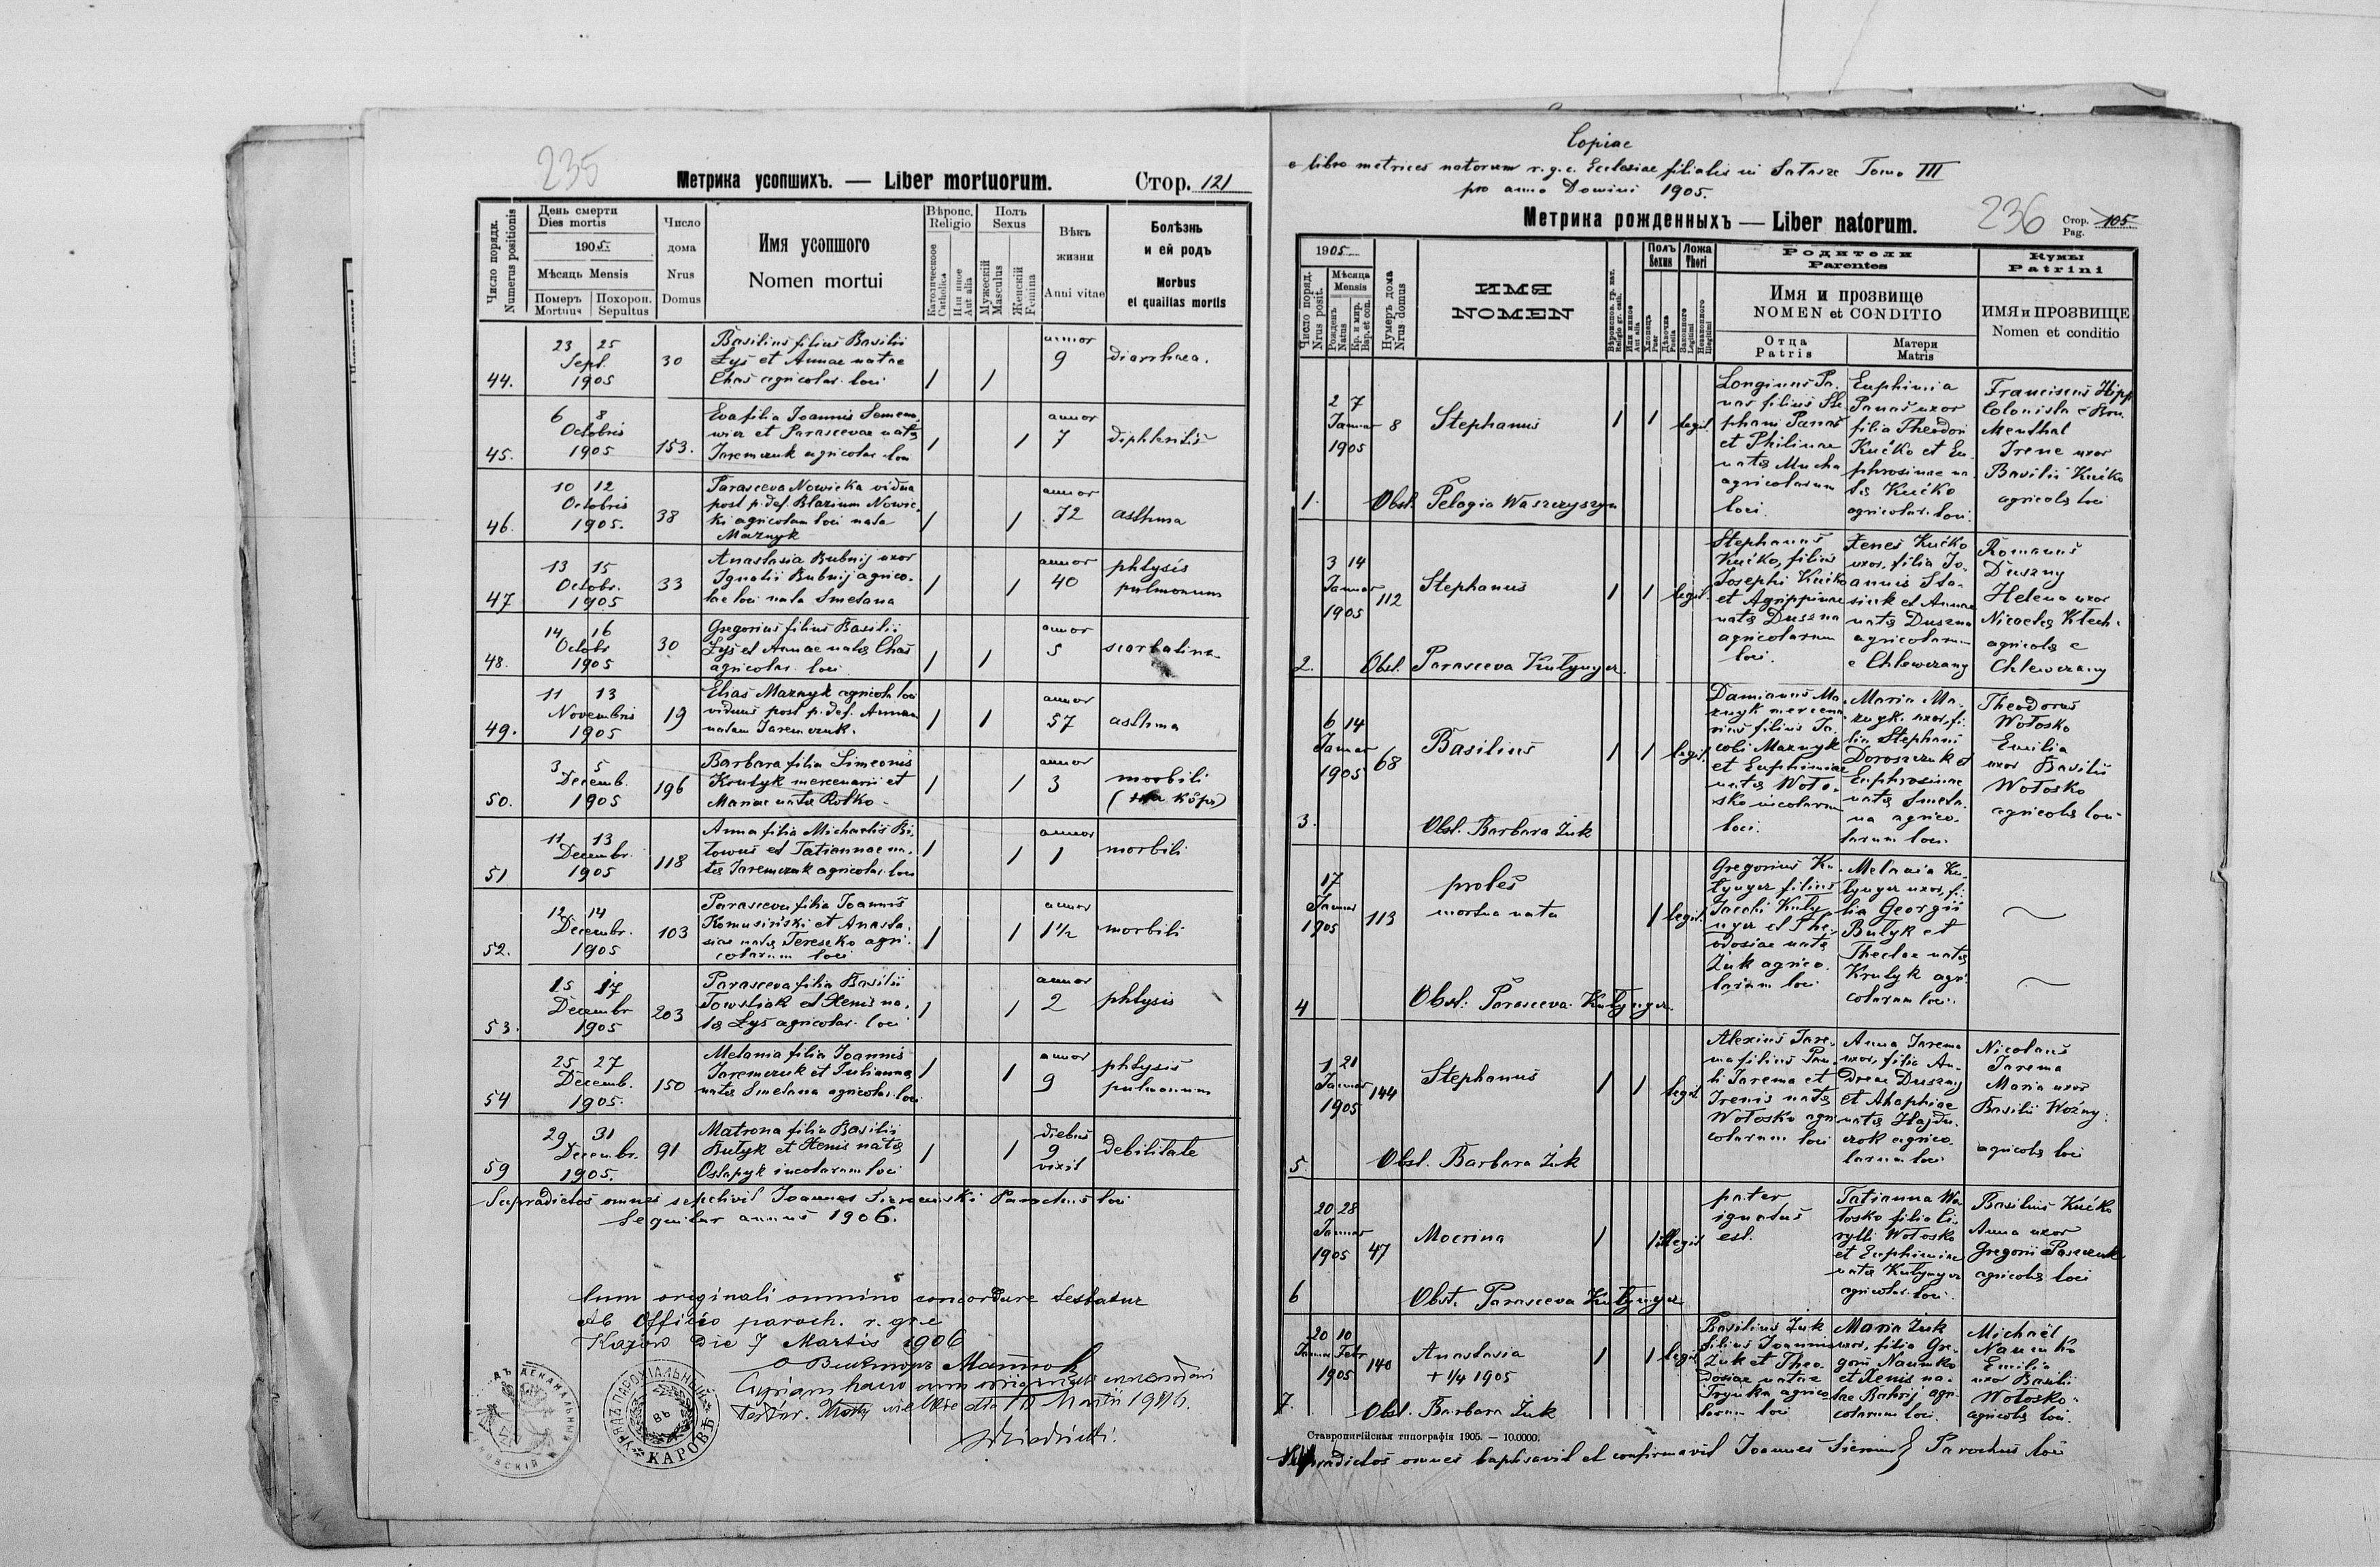 235
Метрика усопшихъ. — Liber mortuorum. Стор. 121
Число порядк.
Numerus positionis
День смерти
Dies mortis
1905
Мѣсяць Mensis
Померъ
Mortuus
Похорон.
Sepultus
Число
дома
Nrus
Domus
Имя усопшого
Nomen mortui
Вѣроис.
Religio
Католическое
Catholica
Или иное
Aut alia
Полъ
Sexus
Мужескій
Masculus
Женскій
Femina
Вѣкъ
жизни
Anni vitae
Болѣзнь
и ей родъ
Morbus
et qualitas mortis
44.
23 25
Sept.
1905
30
Basilius filius Basilii
Łyś et Annae natae
Chaś agricolar. loci
annor
9
diarrhaea.
45.
6 8
Octobris
1905
153.
Eva filia Joannis Semeno
wicz et Parascevae natę
Jaremczuk agricolar. loci
annor
7
diphteritis
46.
10 12
Octobris
1905.
38
Parasceva Nowicka vidua
post p. def. Blazium Nowic
ki agricolam loci nata
Maznyk
annor
72
asthma
47
13 15
Octobr.
1905
33
Anastasia Bubnij uxor
Ignatii Bubnij agrico.
lae loci nata Smetana
annor
40
phtysis
pulmonum
48.
14 16
Octobr
1905
30
Gregorius filius Basilii
Łyś et Annae natę Chaś
agricolar. loci
annor
5
scarlatina
49.
11 13
Novembris
1905
19
Elias Maznyk agricola loci
viduus post p. def. Annam
natam Jaremczuk.
annor
57
asthma
50.
3 5
Decemb.
1905
196
Barbara filia Simeonis
Krutyk mercenarii et
Mariae natę Rotko
annor
3
morbili
51
11 13
Decembr.
1905
118
Anna filia Michaelis Bi
towus et Tatiannae na.
tę Jaremczuk agricolar. loci
annor
1
morbili
52.
12 14
Decembr.
1905
103
Parasceva filia Joannis
Komusiński et Anasta.
siae natę Tereszko agri.
colarum loci
annor
1½
morbili
53.
15 17
Decembr
1905
203
Parasceva filia Basilii
Towstiak et Xenis na.
tę Łyś agricolar. loci
annor
2
phtysis
54
25 27
Decemb.
1905.
150
Melania filia Joannis
Jaremczuk et Julianna
natę Smetana agricolar. loci
annor
9
phtysis
pulmonum
59
29 31
Decembr.
1905.
91
Matrona filia Basilii
Butyk et Xenis natę
Ostapyk incolarum loci
diebus
9
vixit
debilitate
Supradictos omnes sepelivit Joannes Parochus loci
Sequitur annus 1906.
Cum originali omnino concordare testatur
Ab Officio paroch. r. gr. c
Karów die 7 Martis 1906
УРЯДЪ ПАРОХІАЛЬНЫЙ
ВЪ
КАРОВѢ
Copiae
e libro metrices natorum r. g. c. Ecclesiae filialis in Tomo III
pro anno Domini 1905.
Метрика рожденныхъ — Liber natorum.
236
Стор.
Pag.
105
1905
Число поряд.
Nrus posit.
Мѣсяца
Mensis
Рожденъ
Natus
Кр. и мир.
Bap. et con.
Нумеръ дома
Nrus domus
ИМЯ
NOMEN
Вѣроиспов. гр. кат.
Religio gr. cath.
Или иное
Aut alia
Полъ
Sexus
Хлопець
Puer
Дѣвочка
Puella
Ложа
Thori
Законного
Legitimi
Незаконного
Illegitimi
Родители
Parentes
Имя и прозвище
NOMEN et CONDITIO
Отца
Patris
Матери
Matris
Кумы
Patrini
ИМЯ и ПРОЗВИЩЕ
Nomen et conditio
1.
2 7
Januar
1905
8
Stephanus
legit.
Longinus Pa.
nas filius Ste
phani Panas
et Philinae
natę Mucha
agricolarum
loci.
Euphimia
Panas uxor
filia Theodori
Kućko et Eu
phrosinae na
tę Kućko
agricolar. loci.
Franciscus Hipp
Colonista e Bru.
menthal
Irene uxor
Basilii Kućko
agricolę loci
Obst. Pelagia Waszczyszyn
2.
3 14
Januar
1905
112
Stephanus
legit.
Stephanus
Kućko, filius
Josephi Kućko
et Agrippinae
natę Duszna
agricolarum
loci.
Xenes Kućko
uxor, filia Jo.
annis Sta.
siuk et Annae
natę Duszna
agricolarum
e Chlewczany
Romanus
Duszny
Helena uxor
Nicolai Klech.
agricolę e
Chlewczany
Obst. Parasceva Kułynycz.
3.
6 14
Januar
1905
68
Basilius
legit.
Damianus Ma
znyk mercena
rius filius Ja.
cobi Maznyk
et Euphimiae
natę Woło.
sko incolarum
loci.
Maria Ma.
znyk. uxor, fi.
lia Stephani
Doroszczuk et
Euphrosinae
natę Smeta.
na agrico.
larum loci.
Theodorus
Wołosko
Emilia
uxor Basilii
Wołosko
agricolę loci
Obst. Barbara Żuk
4
17
Januar
1905
113
proles
mortua nata
legit.
Gregorius Ku.
łynycz filius
Jacobi Kuły.
nycz et The.
odosiae natę
Żuk agrico.
larum loci
Melania Ku.
łynycz uxor, fi.
lia Georgii
Butyk et
Theclae natę
Krutyk agri
colarum loci.
Obst. Parasceva Kułynycz.
5.
1 21
Januar
1905
144
Stephanus
legit
Alexius Jare.
ma filius Pau.
li Jarema et
Irenis natę
Wołosko agri
colarum loci
Anna Jarema
uxor, filia An.
dreae Duszny
et Ahaphiae
natę Hajdu.
czok agrico.
larum loci
Nicolaus
Jarema
Maria uxor
Basilii Woźny.
agricolę loci
Obst. Barbara Żuk
6
20 28
Januar
1905
47
Mocrina
illegit
pater
ignotus
est.
Tatianna Wo
łosko filia Ci.
rylli Wołosko
et Euphimiae
natę Kułynycz
agricolar. loci.
Basilius Kućko
Anna uxor
Gregorii Paszczuk
agricolę loci
Obst. Parasceva Kułynycz
7.
20 10
Januar Febr
1905
140
Anastasia
+ 1/4 1905
legit
Basilius Żuk
filius Joannis
Żuk et Theo.
dosiae natae
Hryńka agrico
larum loci
Maria Żuk
uxor, filia Gre.
gorii Naumko
et Xenis na.
tae Bubnij agri.
colarum loci.
Michaël
Naumko
Emilia
uxor Basilii
Wołosko.
agricolę loci.
Obst. Barbara Żuk
Ставропигійская типографія 1905. — 10.0000.
Supradictos omnes baptisavit et confirmavit Joannes Parochus loci